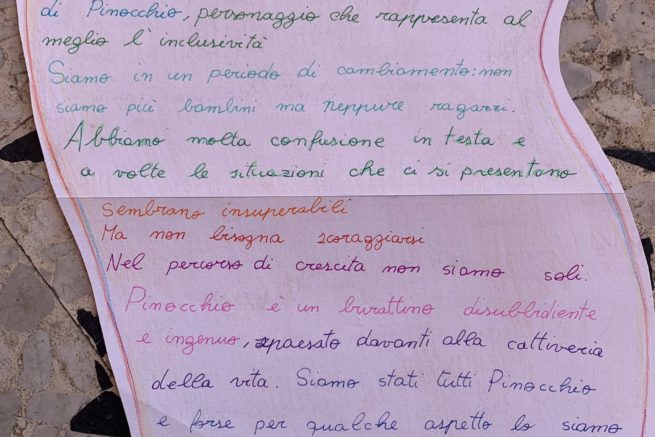 di Pinocchio, personaggio che rappresenta al
meglio l'inclusività
Siamo in un periodo di cambiamento: non
siamo più bambini ma neppure ragazzi.
Abbiamo molta confusione in testa e
a volte le situazioni che ci si presentano
sembrano insuperabili
Ma non bisogna scoraggiarsi
Nel percorso di crescita non siamo soli.
Pinocchio è un burattino disubbidiente
e ingenuo, spaesato davanti alla cattiveria
della vita. Siamo stati tutti Pinocchio
e forse per qualche aspetto lo siamo